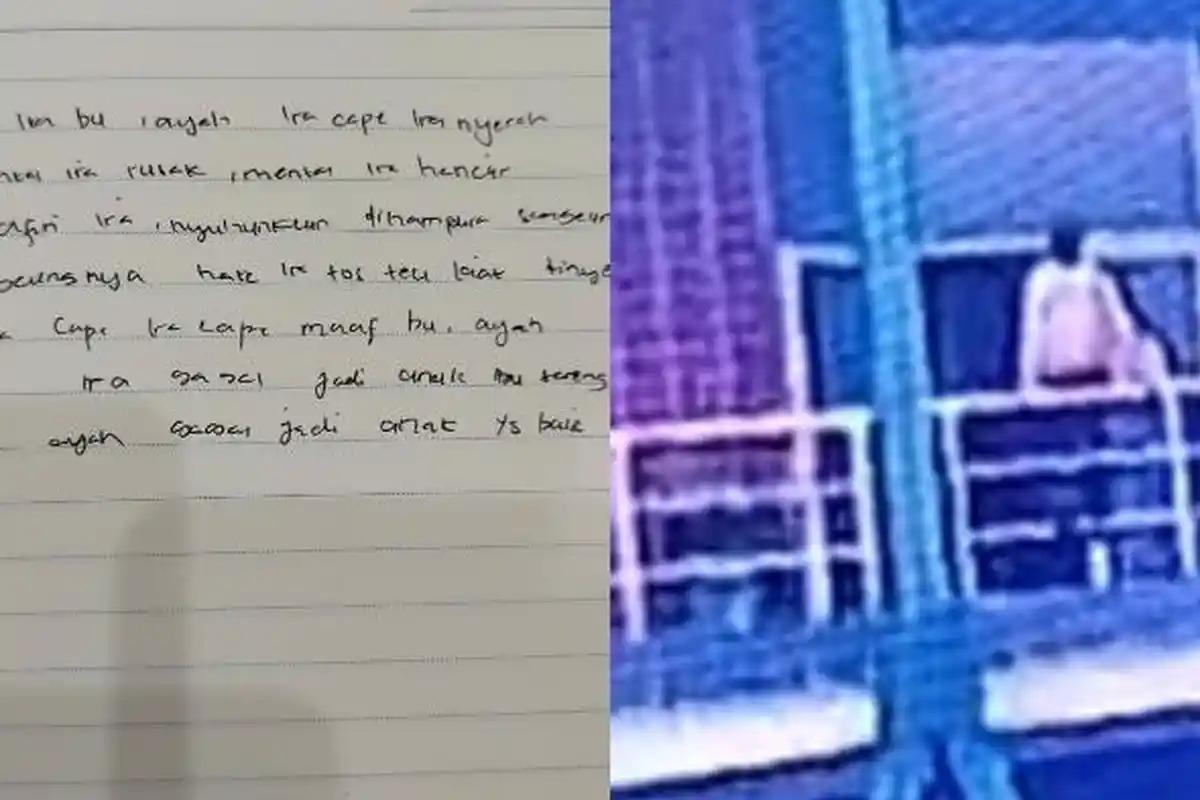 Ira bu , ayah Ira cape Ira nyerah
ira rusak , mental Ira hancur
Ira , nyuhunkeun dihampura
hate Ira tos teu kiat
Cape Ira cape maaf bu, ayah
Ira gagal jadi anak ibu
ayah gagal jadi anak yg baik